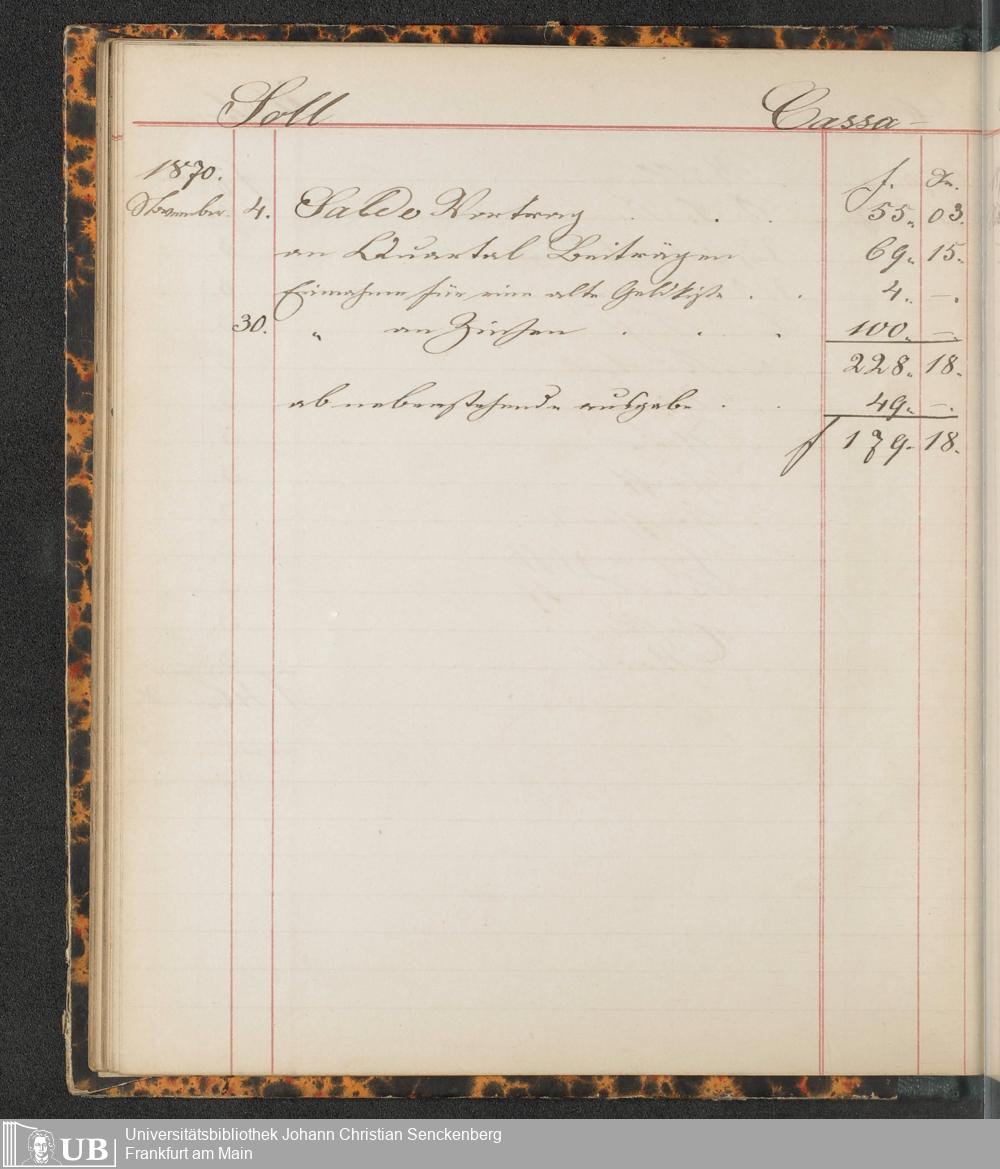 Soll Cassa
1870. f. Xr.
November. 4. Saldo Vortrag . . . 55. 03.
an Quartal Beiträgen 69. 15.
Einnahme für eine alte Geldkiste . . 4. —.
30. " an Zinsen . . . 100. —.
228. 18.
ab nebenstehende ausgabe . . 49. —.
f 179. 18.
UB Universitätsbibliothek Johann Christian Senckenberg
Frankfurt am Main